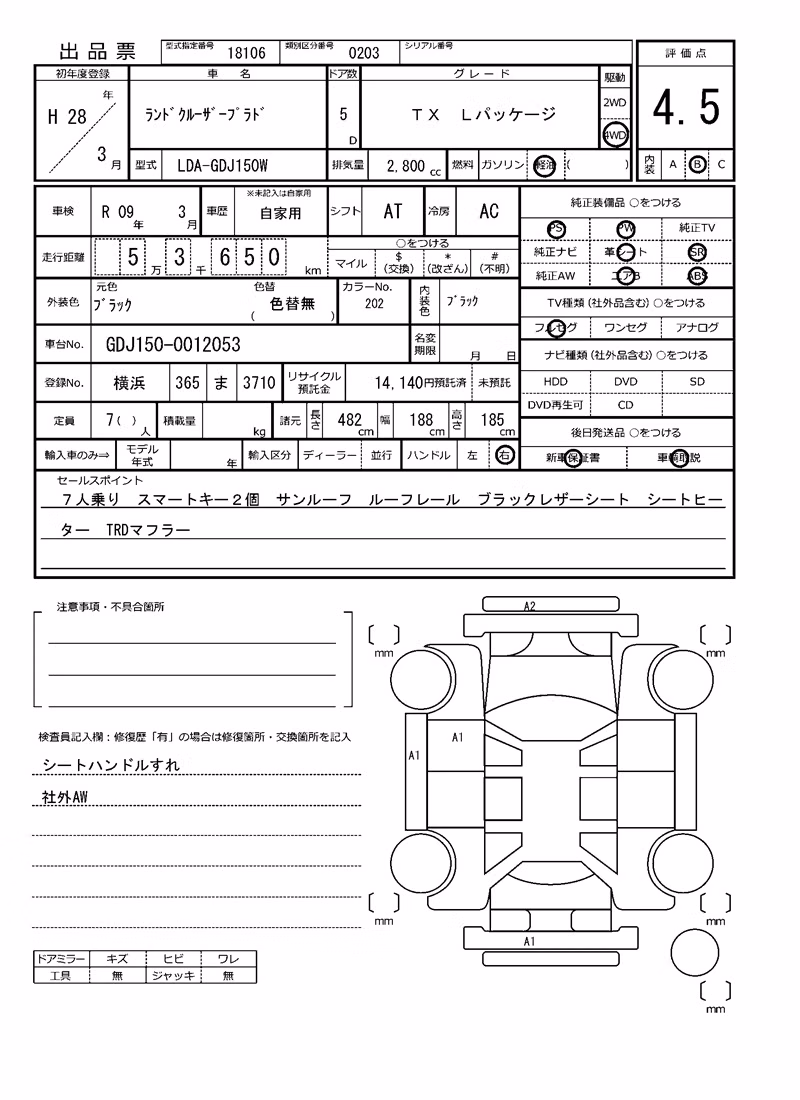 出品票 型式指定番号 18106 類別区分番号 0203 シリアル番号 評価点
初年度登録 車 名 ドア数 グレード 駆動
H 28 年 3 月 ﾗﾝﾄﾞｸﾙｰｻﾞｰﾌﾟﾗﾄﾞ 5 D TX Lパッケージ 2WD 4WD 4.5
型式 LDA-GDJ150W 排気量 2,800 cc 燃料 ガソリン 軽油 ( ) 内装 A B C
車検 R 09 年 3 月 車歴 ※未記入は自家用 自家用 シフト AT 冷房 AC 純正装備品 ○をつける
PS PW 純正TV
走行距離 5 万 3 千 6 5 0 km ○をつける マイル $ (交換) * (改ざん) # (不明) 純正ナビ 革シート SR
純正AW エアB ABS
外装色 元色 ﾌﾞﾗｯｸ 色替 ( 色替無 ) カラーNo. 202 内装色 ﾌﾞﾗｯｸ TV種類(社外品含む)○をつける
フルセグ ワンセグ アナログ
車台No. GDJ150-0012053 名変期限 月 日 ナビ種類(社外品含む)○をつける
登録No. 横浜 365 ま 3710 リサイクル預託金 14,140 円預託済 未預託 HDD DVD SD
DVD再生可 CD
定員 7( ) 人 積載量 kg 諸元 長さ 482 cm 幅 188 cm 高さ 185 cm 後日発送品 ○をつける
輸入車のみ⇒ モデル年式 年 輸入区分 ディーラー 並行 ハンドル 左 右 新車保証書 車輌取説
セールスポイント
7人乗り スマートキー2個 サンルーフ ルーフレール ブラックレザーシート シートヒー
ター TRDマフラー
注意事項・不具合箇所
検査員記入欄:修復歴「有」の場合は修復箇所・交換箇所を記入
シートハンドルすれ
社外AW
ドアミラー キズ ヒビ ワレ
工具 無 ジャッキ 無
A2
mm mm
A1 A1
mm mm
A1
mm